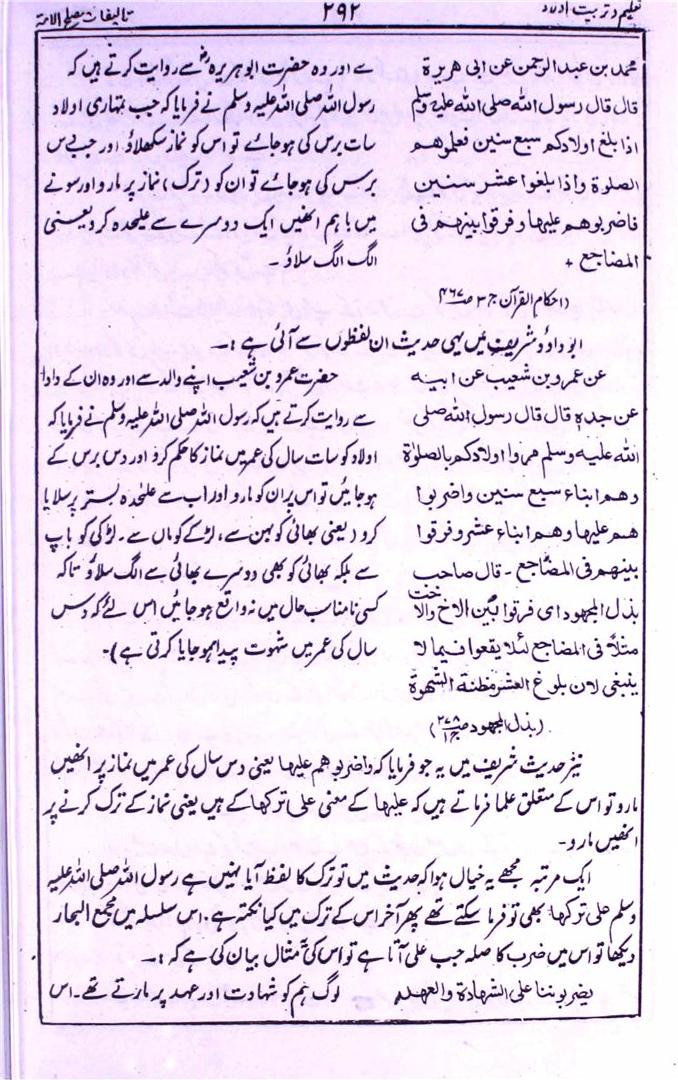 تعلیم و تربیت اولاد
۲۹۲
تالیفات مصلح الامۃ
محمد بن عبد الرحمن عن ابی هریرة
قال قال رسول الله صلی الله علیه وسلم
اذا بلغ اولادکم سبع سنین فعلموهم
الصلوة واذا بلغوا عشر سنین
فاضربوهم علیها وفرقوا بینهم فی
المضاجع +
سے اور وہ حضرت ابو ہریرہؓ سے روایت کرتے ہیں کہ
رسول اللہ صلی اللہ علیہ وسلم نے فرمایا کہ جب تمہاری اولاد
سات برس کی ہو جائے تو اس کو نماز سکھلاؤ اور جب دس
برس کی ہو جائے تو ان کو (ترک) نماز پر مارو اور سونے
میں باہم انھیں ایک دوسرے سے علیحدہ کردو یعنی
الگ الگ سلاؤ۔
(احکام القرآن ج ۳ ص ۴۶۷)
ابو داؤد شریف میں یہی حدیث ان لفظوں سے آئی ہے :۔
عن عمرو بن شعیب عن ابیه
عن جده قال قال رسول الله صلی
الله علیه وسلم مروا اولادکم بالصلوٰة
وهم ابناء سبع سنین واضربوا
هم علیها وهم ابناء عشر وفرقوا
بینهم فی المضاجع ۔ قال صاحب
بذل المجهود ای فرقوا بین الاخ والاخت
مثلاً فی المضاجع لئلا یقعوا فیما لا
ینبغی لان بلوغ العشر مظنة الشهوة
(بذل المجہود ص ۲۷۸ ج ۱)
حضرت عمرو بن شعیب اپنے والد سے اور وہ ان کے دادا
سے روایت کرتے ہیں کہ رسول اللہ صلی اللہ علیہ وسلم نے فرمایا کہ
اولاد کو سات سال کی عمر میں نماز کا حکم کرو اور دس برس کے
ہو جائیں تو اس پر ان کو مارو اور اب سے علیٰحدہ بستر پر سلایا
کرو (یعنی بھائی کو بہن سے، لڑکے کو ماں سے۔ لڑکی کو باپ
سے بلکہ بھائی کو بھی دوسرے بھائی سے الگ سلاؤ تاکہ
کسی نامناسب حال میں نہ واقع ہو جائیں اس لئے کہ دس
سال کی عمر میں شہوت پیدا ہو جایا کرتی ہے)۔
نیز حدیث شریف میں یہ جو فرمایا کہ واضربوهم علیها یعنی دس سال کی عمر میں نماز پر انھیں
مارو تو اس کے متعلق علما فرماتے ہیں کہ علیها کے معنی علی ترکها کے ہیں یعنی نماز کے ترک کرنے پر
انھیں مارو۔
ایک مرتبہ مجھے یہ خیال ہوا کہ حدیث میں تو ترک کا لفظ آیا نہیں ہے رسول اللہ صلی اللہ علیہ
وسلم علی ترکها بھی تو فرما سکتے تھے پھر آخر اس کے ترک میں کیا نکتہ ہے۔ اس سلسلہ میں مجمع البحار
دیکھا تو اس میں ضرب کا صلہ جب علی آتا ہے تو اس کی مثال بیان کی ہے کہ :۔
یضربوننا علی الشهادة والعهد
لوگ ہم کو شہادت اور عہد پر مارتے تھے۔ اس